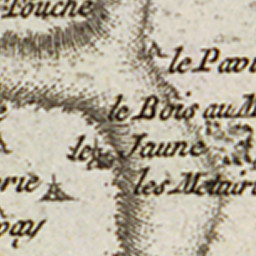 Touche
le Pavi
le Bois au M
le Jaune
les Metairi
rie
way